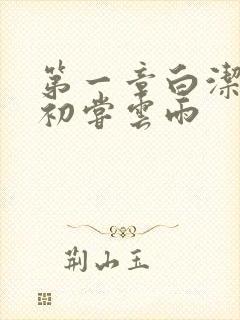 第一章白潔
初嘗雲雨
荆山玉